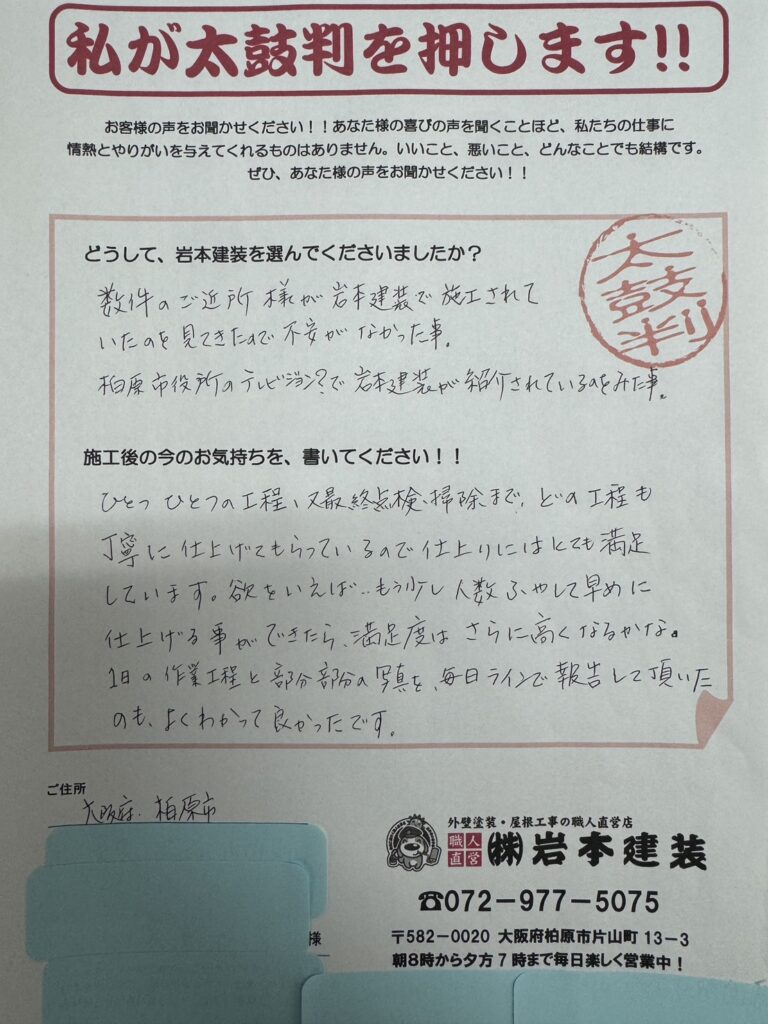 私が太鼓判を押します!!
お客様の声をお聞かせください！！あなた様の喜びの声を聞くことほど、私たちの仕事に
情熱とやりがいを与えてくれるものはありません。いいこと、悪いこと、どんなことでも結構です。
ぜひ、あなた様の声をお聞かせください！！
どうして、岩本建装を選んでくださいましたか？
太鼓判
数件のご近所様が岩本建装で施工されて
いたのを見てきたので不安がなかった事。
柏原市役所のテレビジョン?で岩本建装が紹介されているのをみた事。
施工後の今のお気持ちを、書いてください！！
ひとつひとつの工程、又最終点検、掃除まで、どの工程も
丁寧に仕上げてもらっているので仕上りにはとても満足
しています。欲をいえば‥もう少し人数ふやして早めに
仕上げる事ができたら、満足度はさらに高くなるかな。
1日の作業工程と部分部分の写真を、毎日ラインで報告して頂いた
のも、よくわかって良かったです。
ご住所
大阪府 柏原市
様
外壁塗装・屋根工事の職人直営店
職人直営 ㈱岩本建装
☎072－977－5075
〒582－0020 大阪府柏原市片山町13－3
朝8時から夕方7時まで毎日楽しく営業中！